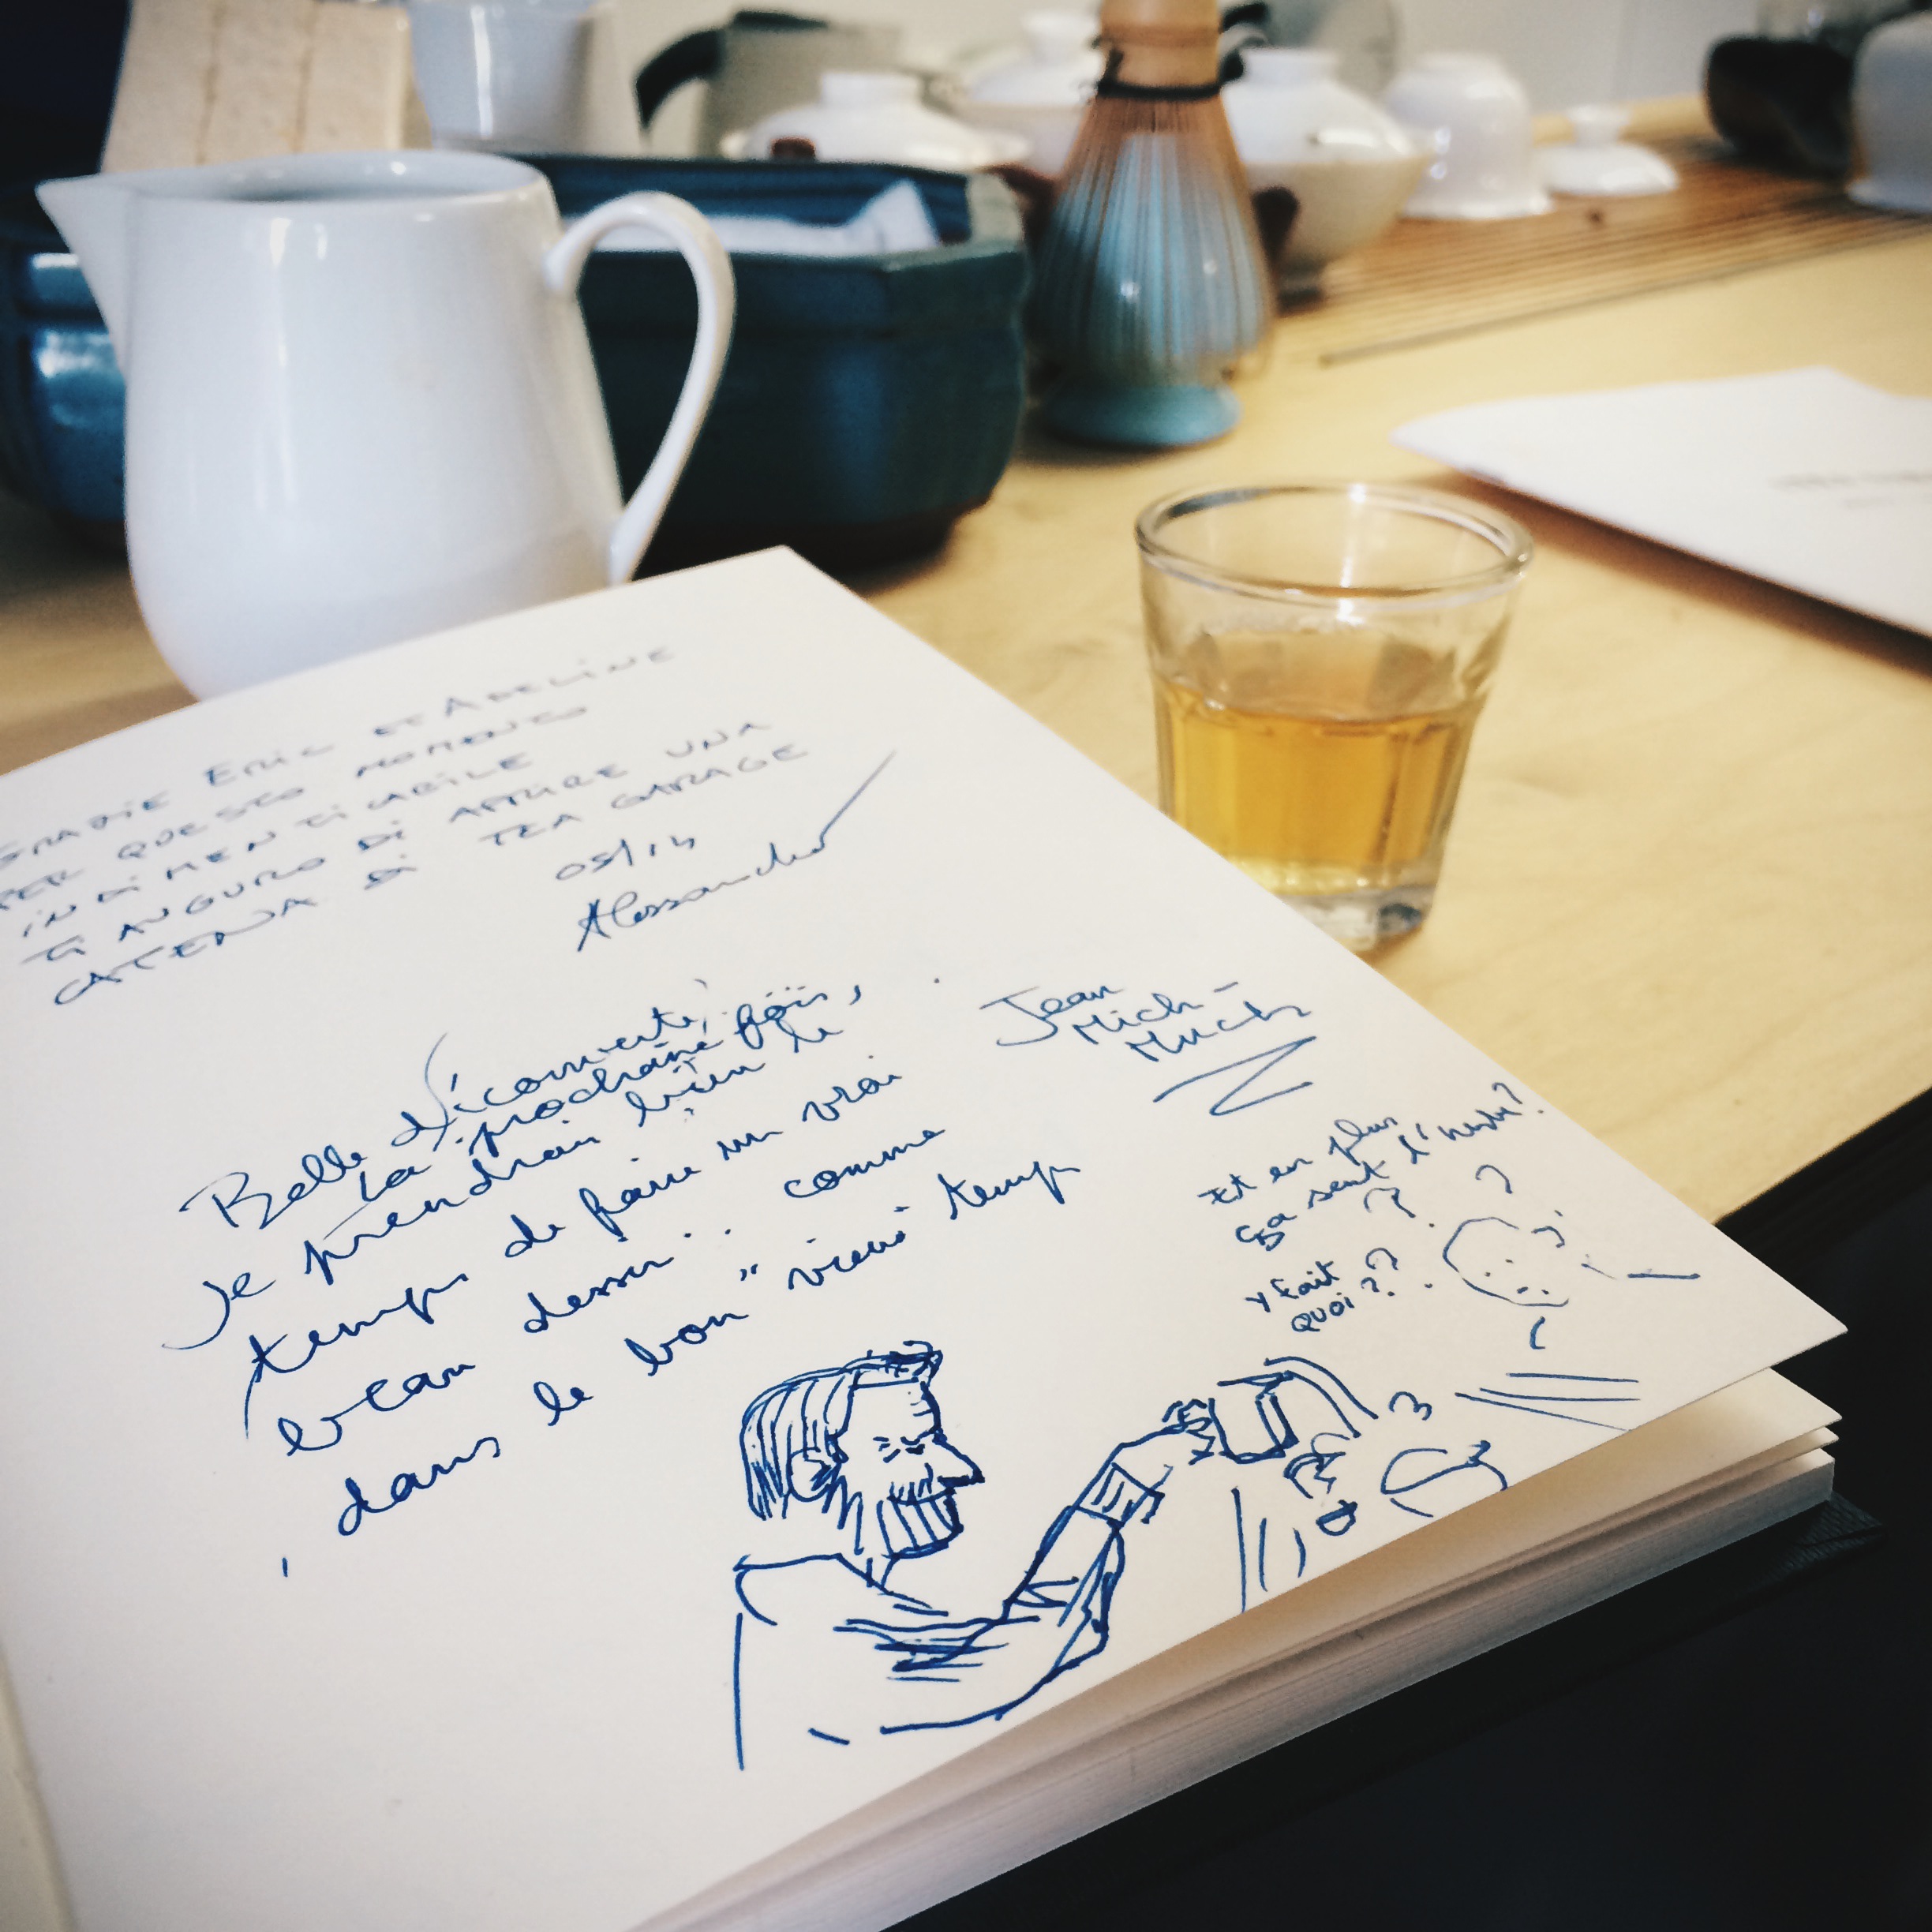 GRAZIE ERIC ET ADELINE
PER QUESTO MOMENTO
INDIMENTICABILE
TI AUGURO DI APRIRE UNA
CATENA DI TEA GARAGE
05/14
Alessandro
Belle découverte,
La prochaine fois,
Je prendrai bien le
temps de faire un vrai
beau dessin.. comme
dans le bon "vieux temps
Jean
Mich-
Much
Et en plus
ça sent l'herbe?
??
y fait
quoi??